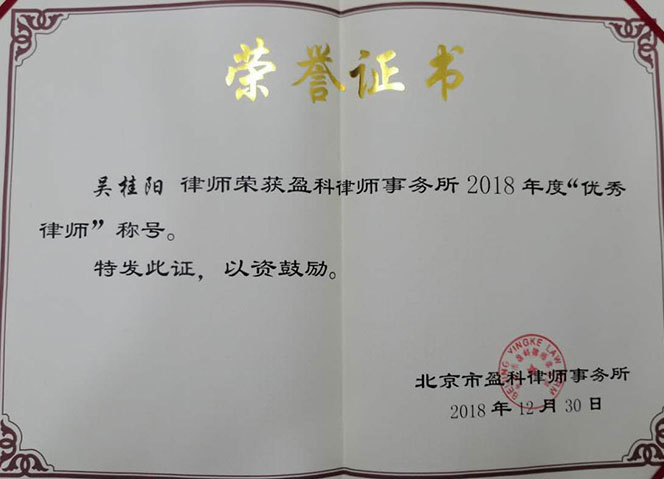 荣誉证书
吴桂阳 律师荣获盈科律师事务所 2018 年度“优秀
律师”称号。
特发此证，以资鼓励。
BEIJING YINGKE LAW FIRM
北京市盈科律师事务所
2018 年 12 月 30 日